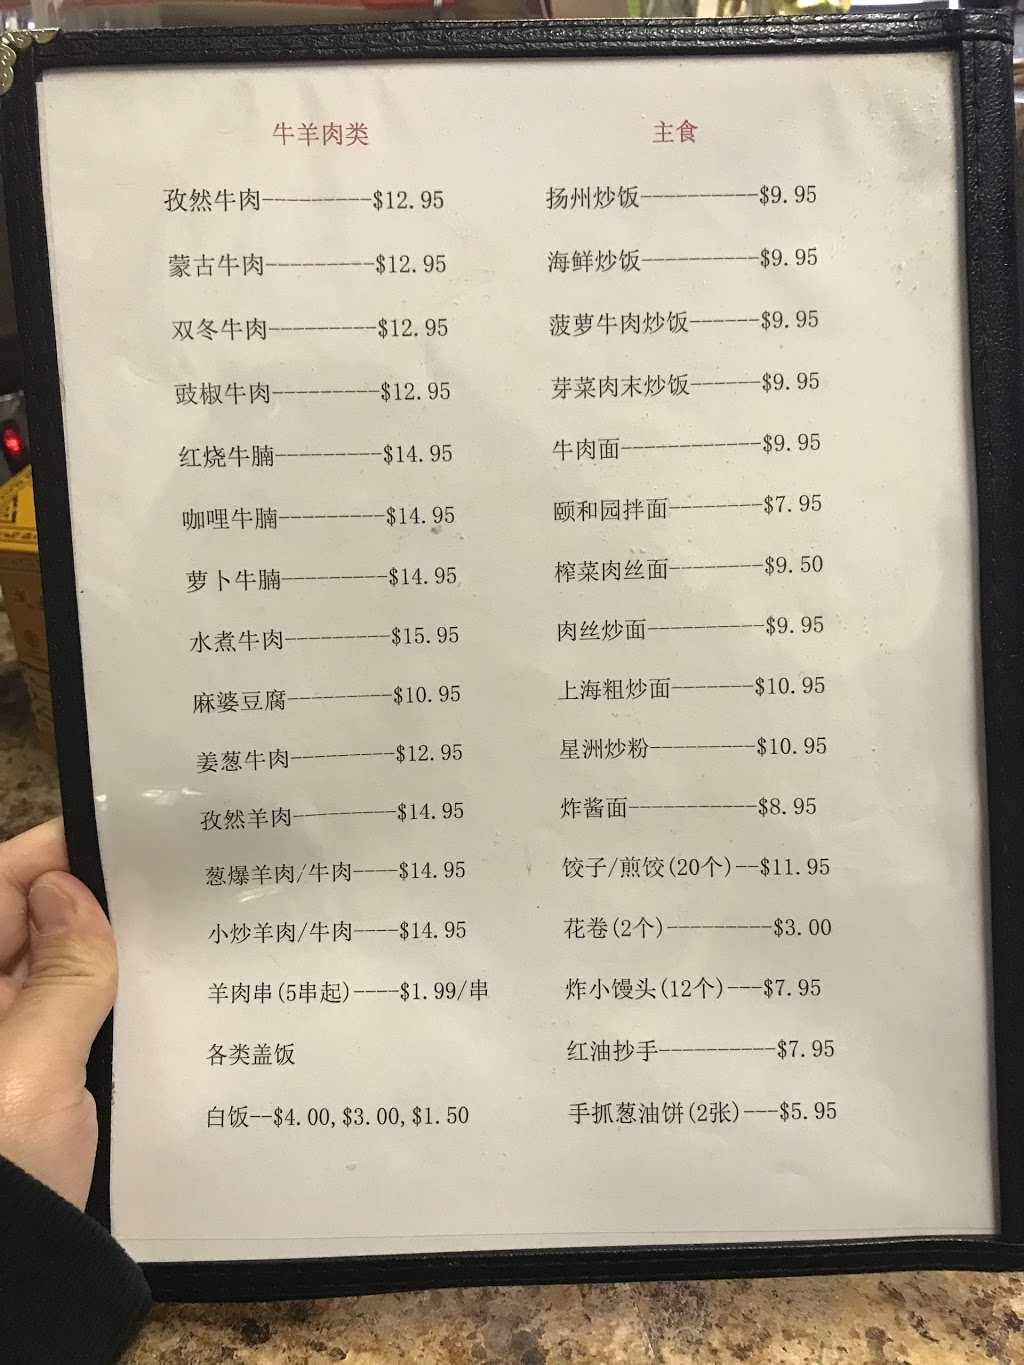 牛羊肉类
孜然牛肉---------$12.95
蒙古牛肉---------$12.95
双冬牛肉---------$12.95
豉椒牛肉---------$12.95
红烧牛腩---------$14.95
咖哩牛腩---------$14.95
萝卜牛腩---------$14.95
水煮牛肉---------$15.95
麻婆豆腐---------$10.95
姜葱牛肉---------$12.95
孜然羊肉---------$14.95
葱爆羊肉/牛肉----$14.95
小炒羊肉/牛肉----$14.95
羊肉串(5串起)----$1.99/串
各类盖饭
白饭--$4.00,$3.00,$1.50
主食
扬州炒饭----------$9.95
海鲜炒饭----------$9.95
菠萝牛肉炒饭------$9.95
芽菜肉末炒饭------$9.95
牛肉面------------$9.95
颐和园拌面--------$7.95
榨菜肉丝面--------$9.50
肉丝炒面----------$9.95
上海粗炒面-------$10.95
星洲炒粉---------$10.95
炸酱面-----------$8.95
饺子/煎饺(20个)--$11.95
花卷(2个)---------$3.00
炸小馒头(12个)---$7.95
红油抄手----------$7.95
手抓葱油饼(2张)---$5.95